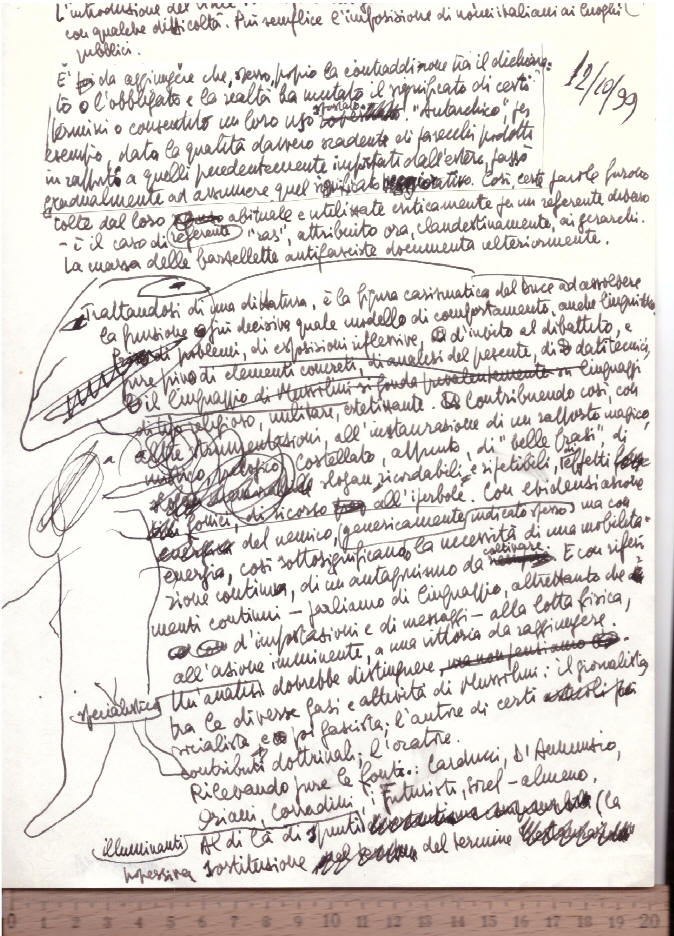 L'introduzione del
con qualche difficoltà. Più semplice l'imposizione di nomi italiani ai luoghi
pubblici.
12/10/99
È da aggiungere che, spesso, proprio la contraddizione tra il dichiara-
to o l'obbligato e la realtà ha mutato il significato di certi
termini o consentito un loro uso spostato. "Autarchico", per
esempio, data la qualità davvero scadente di parecchi prodotti
in rapporto a quelli precedentemente importati dall'estero, passò
gradualmente ad assumere quel significato peggiorativo. Così, certe parole furono
colte dal loro abituale e utilizzate criticamente per un referente diverso
- è il caso di referente "ras", attribuito ora, clandestinamente, ai gerarchi.
La massa delle barzellette antifasciste documenta ulteriormente.
Trattandosi di una dittatura, è la figura carismatica del Duce ad assolvere
la funzione più decisiva quale modello di comportamento, anche linguistico
di problemi, di esposizioni riflessive, d'invito al dibattito, e
pure privo di elementi concreti, di analisi del presente, di dati tecnici,
il linguaggio di Mussolini si fonda prevalentemente su linguaggi
di tipo religioso, militare, estetizzante. Contribuendo così, con
altre strumentazioni, all'instaurazione di un rapporto magico,
mistico, costellato, appunto, di "belle frasi", di
slogan ricordabili e ripetibili, effetti
fonici, di ricorso all'iperbole. Con evidenziazione
energica del nemico, (genericamente indicato spesso) ma con
energia, così sottosignificando la necessità di una mobilita-
zione continua, di un antagonismo da coltivare. E con riferi-
menti continui - parliamo di linguaggio, altrettanto che
d'impostazioni e di messaggi - alla lotta fisica,
all'azione imminente, a una vittoria da raggiungere.
Un'analisi specialistica dovrebbe distinguere,
tra le diverse fasi e attività di Mussolini: il giornalista,
socialista e poi fascista; l'autore di certi
contributi dottrinali; l'oratore.
Rilevando pure le fonti: Carducci, D'Annunzio,
Oriani, Corradini, i Futuristi, Sorel - almeno.
Al di là di spunti illuminanti (la
progressiva sostituzione del termine
0 1 2 3 4 5 6 7 8 9 10 11 12 13 14 15 16 17 18 19 20